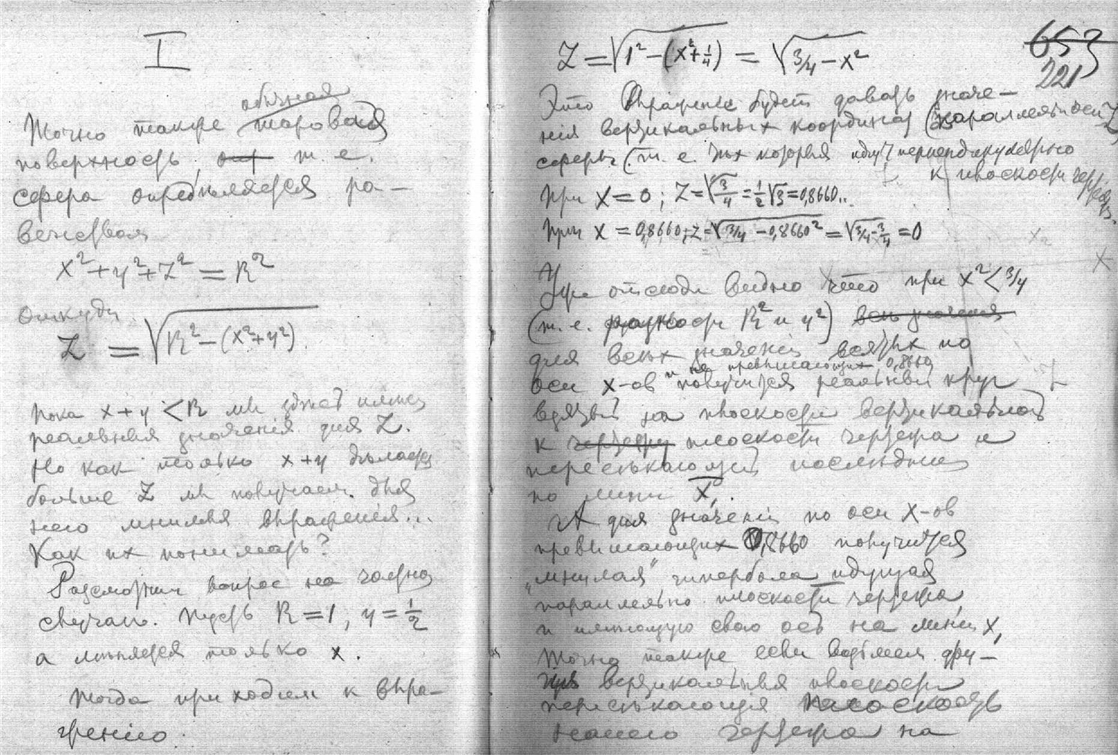 I
обычная
Точно также шаровая
поверхность т. е.
сфера определяется ра-
венством
x² + y² + z² = R²
откуда
Z = √R² − (x² + y²)
пока x + y < R мы будем иметь
реальныя значения для Z.
Но как только x + y делается
больше Z мы получаем для
него мнимыя выражения...
Как их понимать?
Разсмотрим вопрос на частном
случае. Пусть R = 1, y = 1/2
а меняется только x.
Тогда приходим к выра-
жению.
653
221
Z = √1² − (x² + 1/4) = √3/4 − x²
Это выражение будет давать значе-
нія вертикальных координат (параллельн оси Z)
сферы (т. е. тех которыя идут перпендикулярно
к плоскости чертежа.
При x = 0; Z = √3/4 = 1/2 √3 = 0,8660..
При x = 0,8660; z = √3/4 − 0,8660² = √3/4 − 3/4 = 0
Уже отсюда видно что при x² < 3/4
(т. е. разности R² и y²) всех значений
для всех значеній взятых по
и не превышающих 0,8660
оси x-ов получится реальный круг
взятый на плоскости вертикальной
к чертежу плоскости чертежа и
пересекающей последнюю
по линии X₁.
А для значеній по оси X-ов
превышающих 0,8660 получится
„мнимая" гипербола идущая
параллельно плоскости чертежа,
и имеющую свою ось на линии X₁
Точно также если возьмем дру-
гия вертикальныя плоскости
пересекающія плоскость
нашего чертежа на